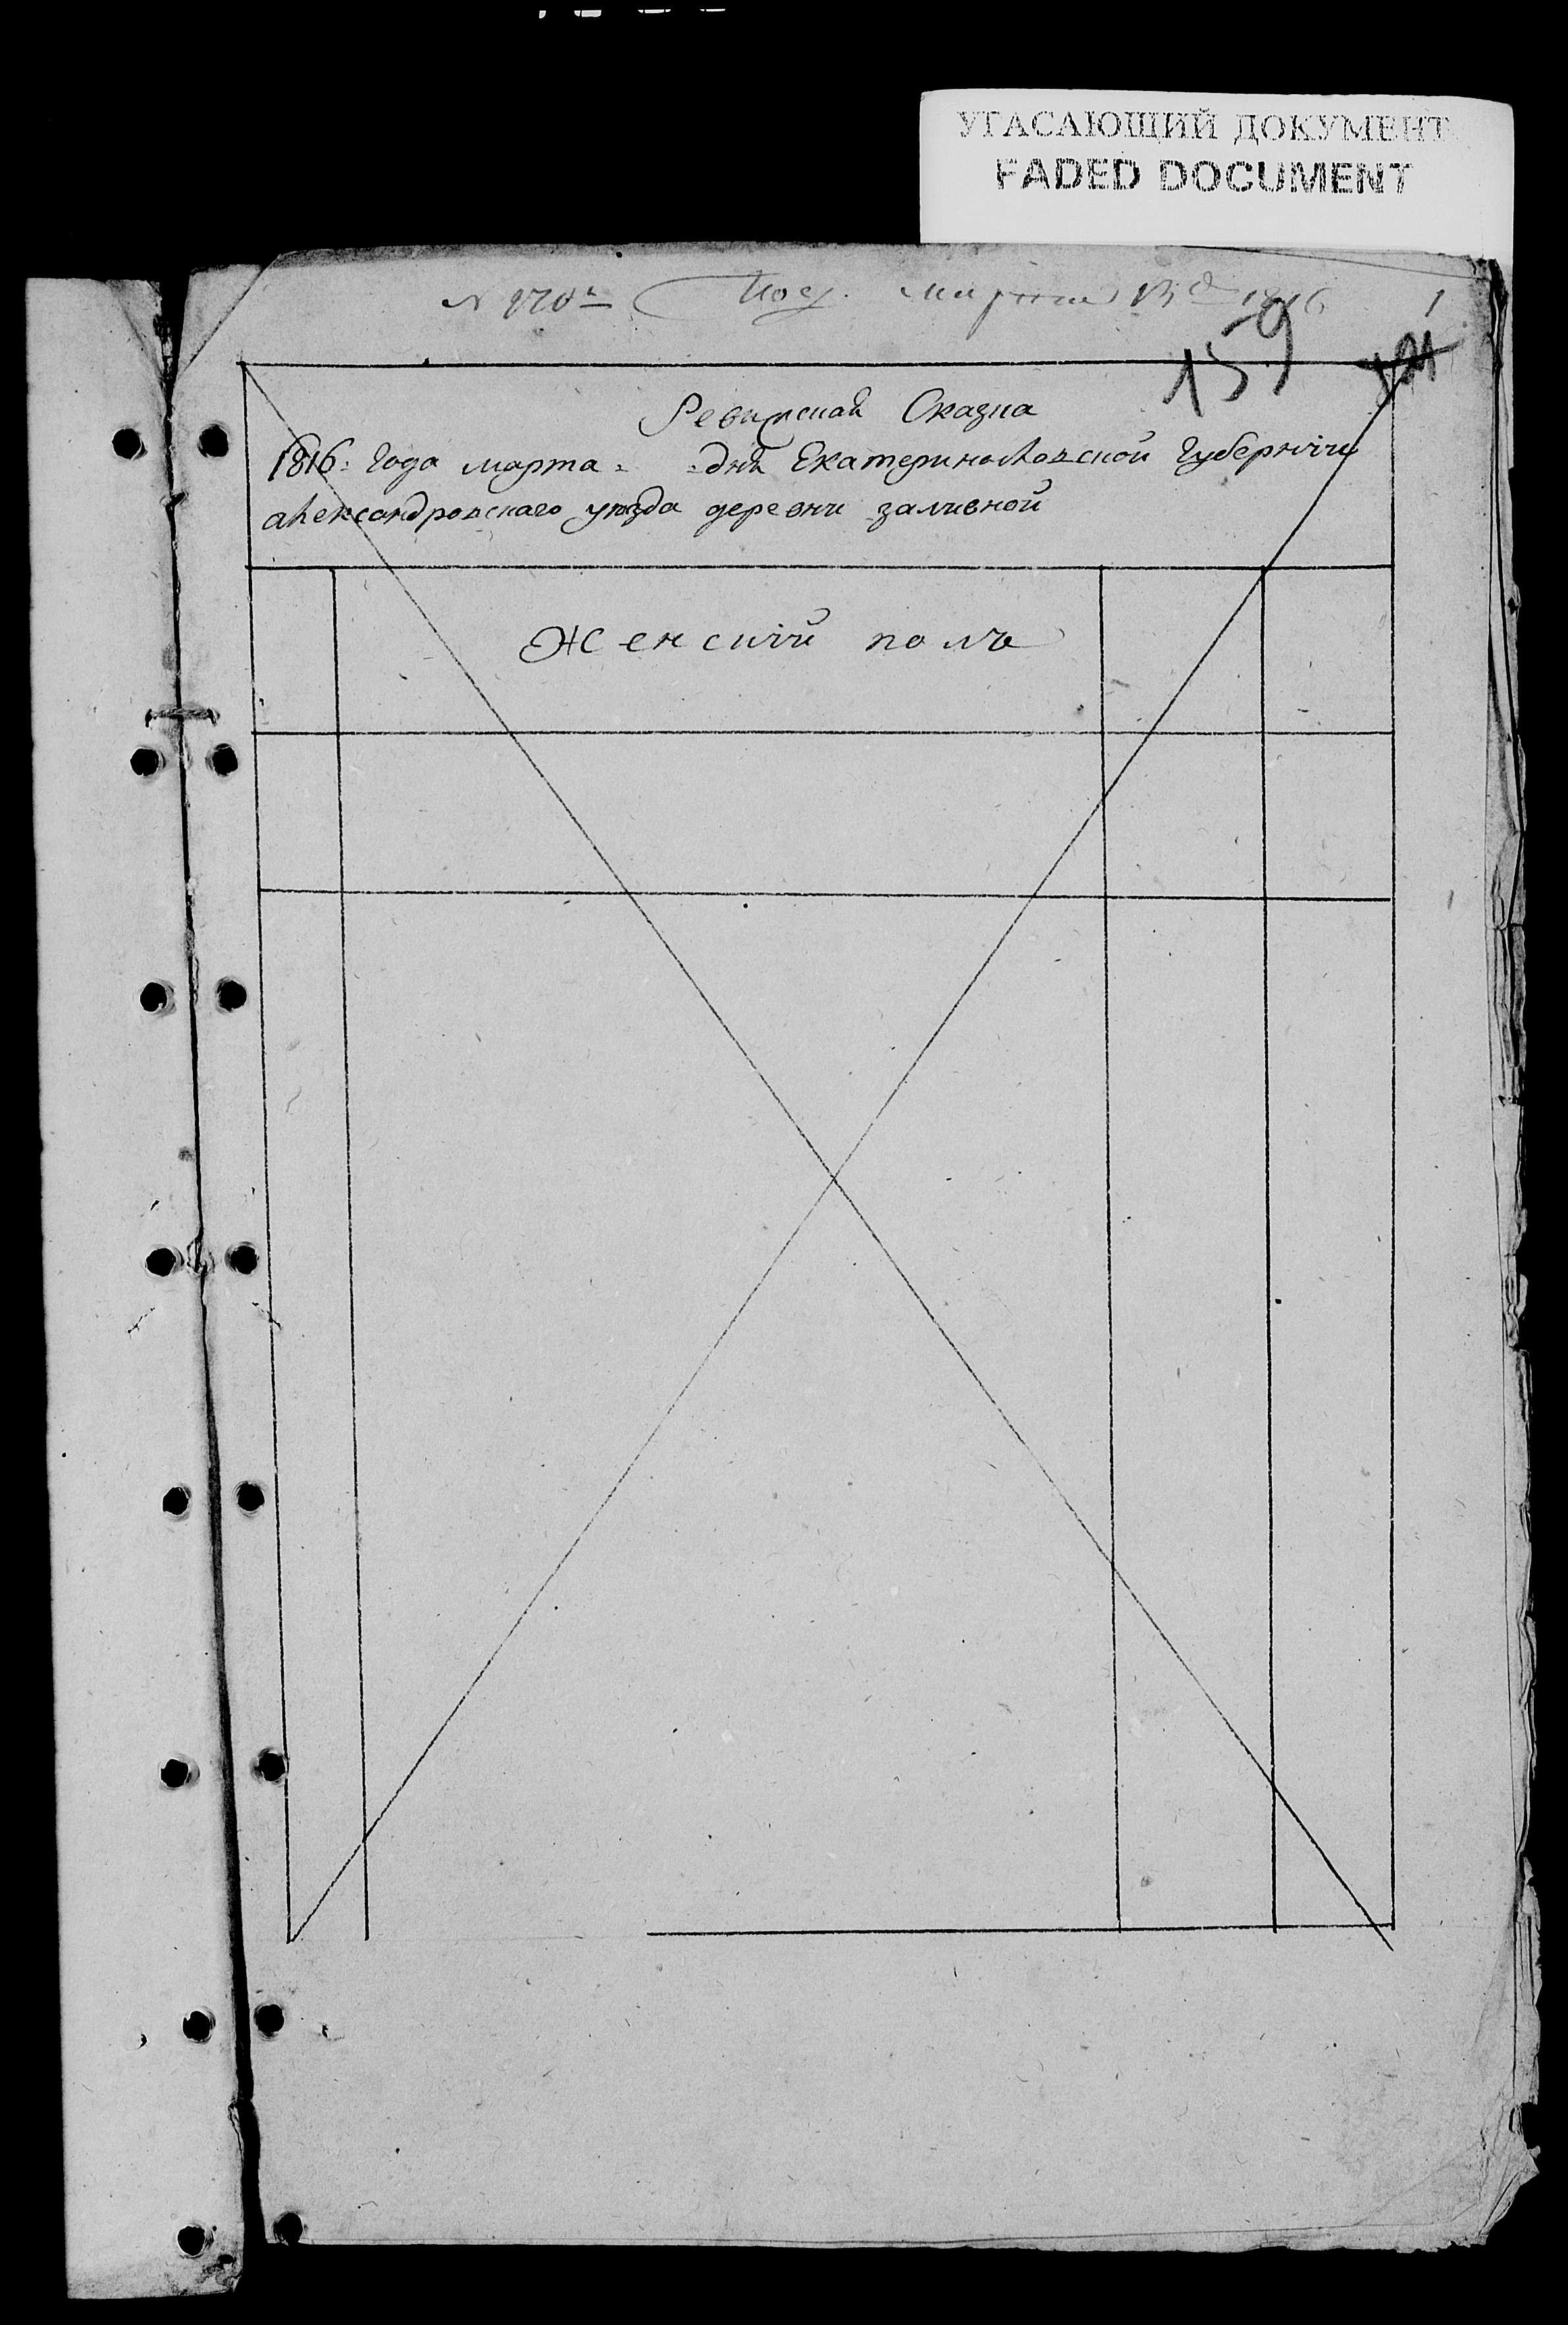 УГАСАЮЩИЙ ДОКУМЕНТ
FADED DOCUMENT
Марта 13 д 1816 1
159
Ревизская Сказка
1816: Года марта = = дня Екатеринославской Губерніи
александровскаго уезда деревни заливной
Женскій полъ